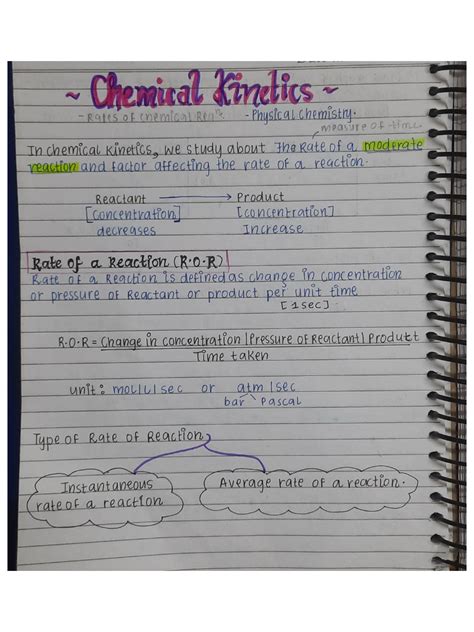 ~ Chemical Kinetics ~
- Rates of Chemical - Physical Chemistry.
measure of time
In chemical kinetics, we study about The Rate of a moderate
reaction and factor affecting the rate of a reaction.
Reactant → Product
[concentration] [concentration]
decreases Increase
Rate of a Reaction (R.O.R)
Rate of a Reaction is defined as change in concentration
or pressure of Reactant or product per unit time
[1sec].
R.O.R = Change in concentration|Pressure of Reactant|Product
Time taken
unit: mol|L|sec or atm|sec
bar Pascal
Type of Rate of Reaction
Instantaneous Average rate of a reaction.
rate of a reaction